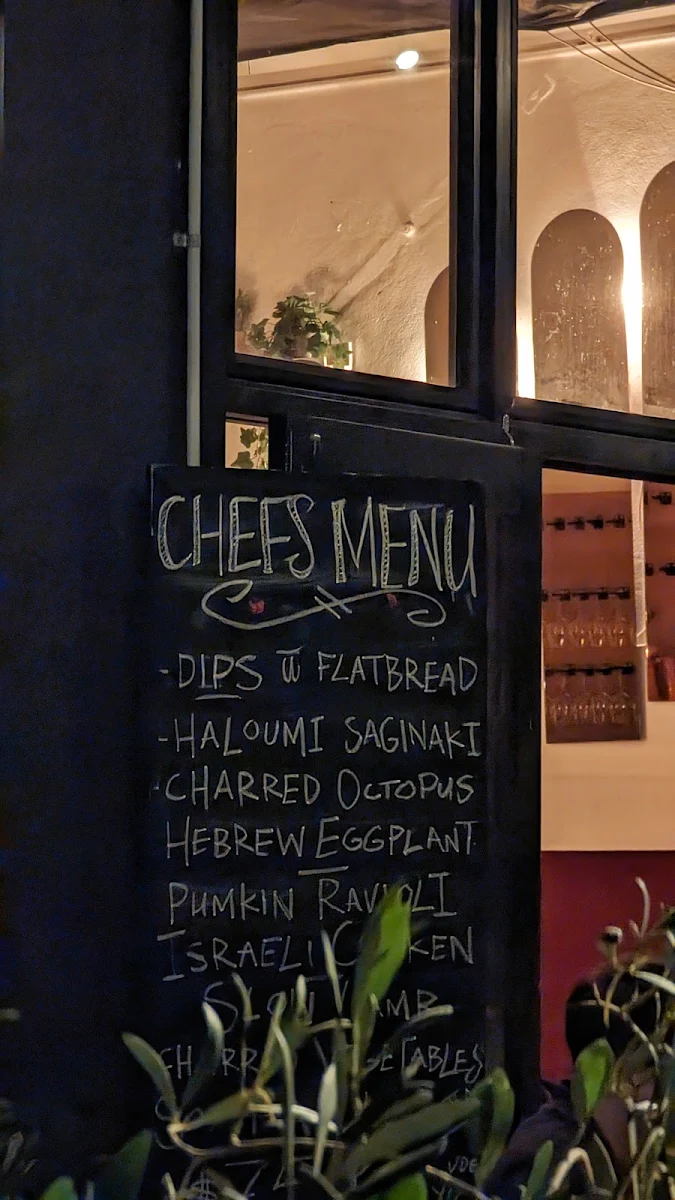 CHEFS MENU
-DIPS W̅ FLATBREAD
-HALOUMI SAGINAKI
CHARRED OCTOPUS
HEBREW EGGPLANT
PUMKIN RAVIOLI
ISRAELI
SLOW LAMB
VEGETABLES